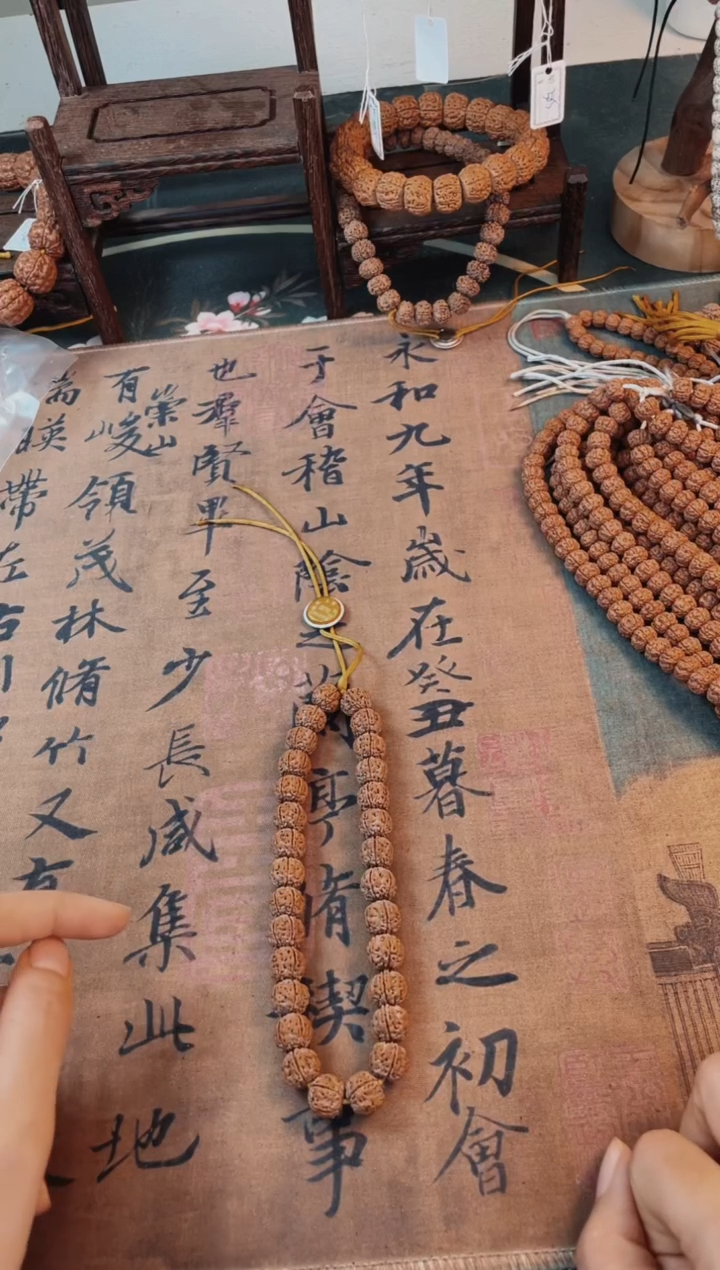 永和九年歲在癸丑暮春之初會
于會稽山陰之蘭亭脩禊事
也羣賢畢至少長咸集此地
有崇山峻領茂林脩竹又有
湍暎帶左右引